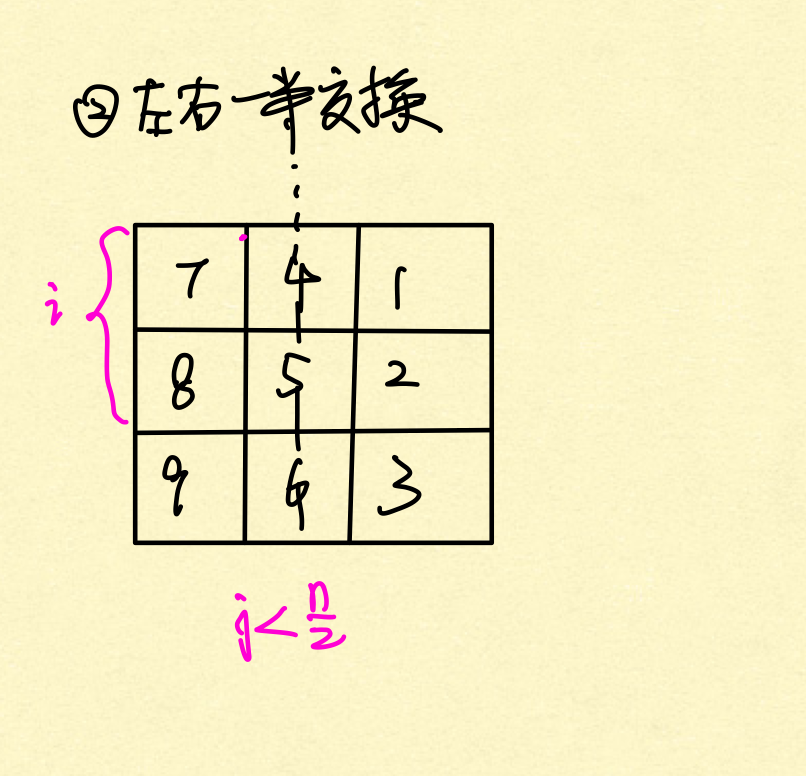 ②左右一半交换
7 4 1
i
8 5 2
9 6 3
j<n/2